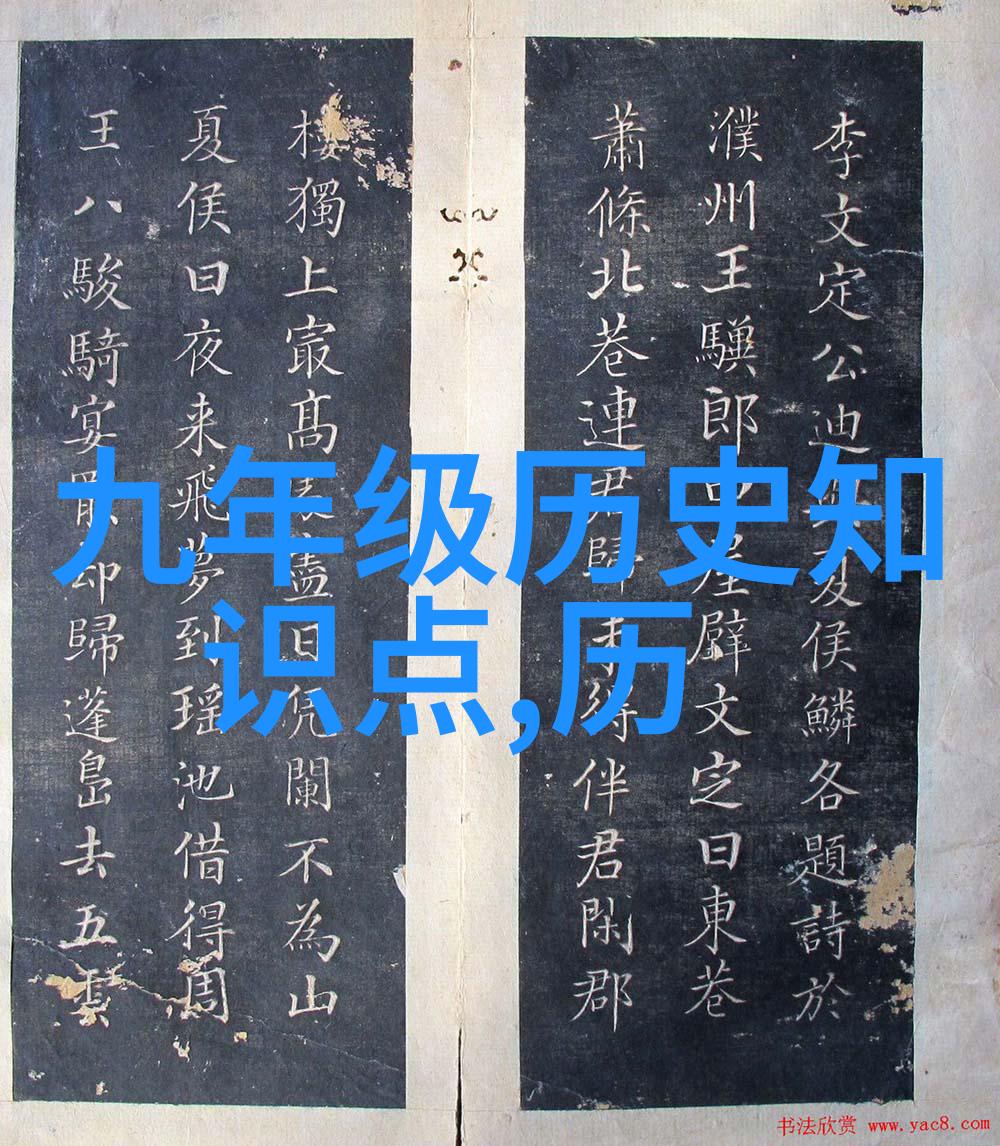 李文定公迪夏侯鱗各題詩於
濮州王郎中屋壁文定曰東巷
蕭條北巷連君歸未得伴君閑郡
樓獨上㝡高盡日凭闌不為山
夏侯曰夜来飛夢到瑶池借得周
王八駿騎宴罷却歸蓬島去五雲
九年级历史知
识点,历
书法欣赏 www.yac8.com